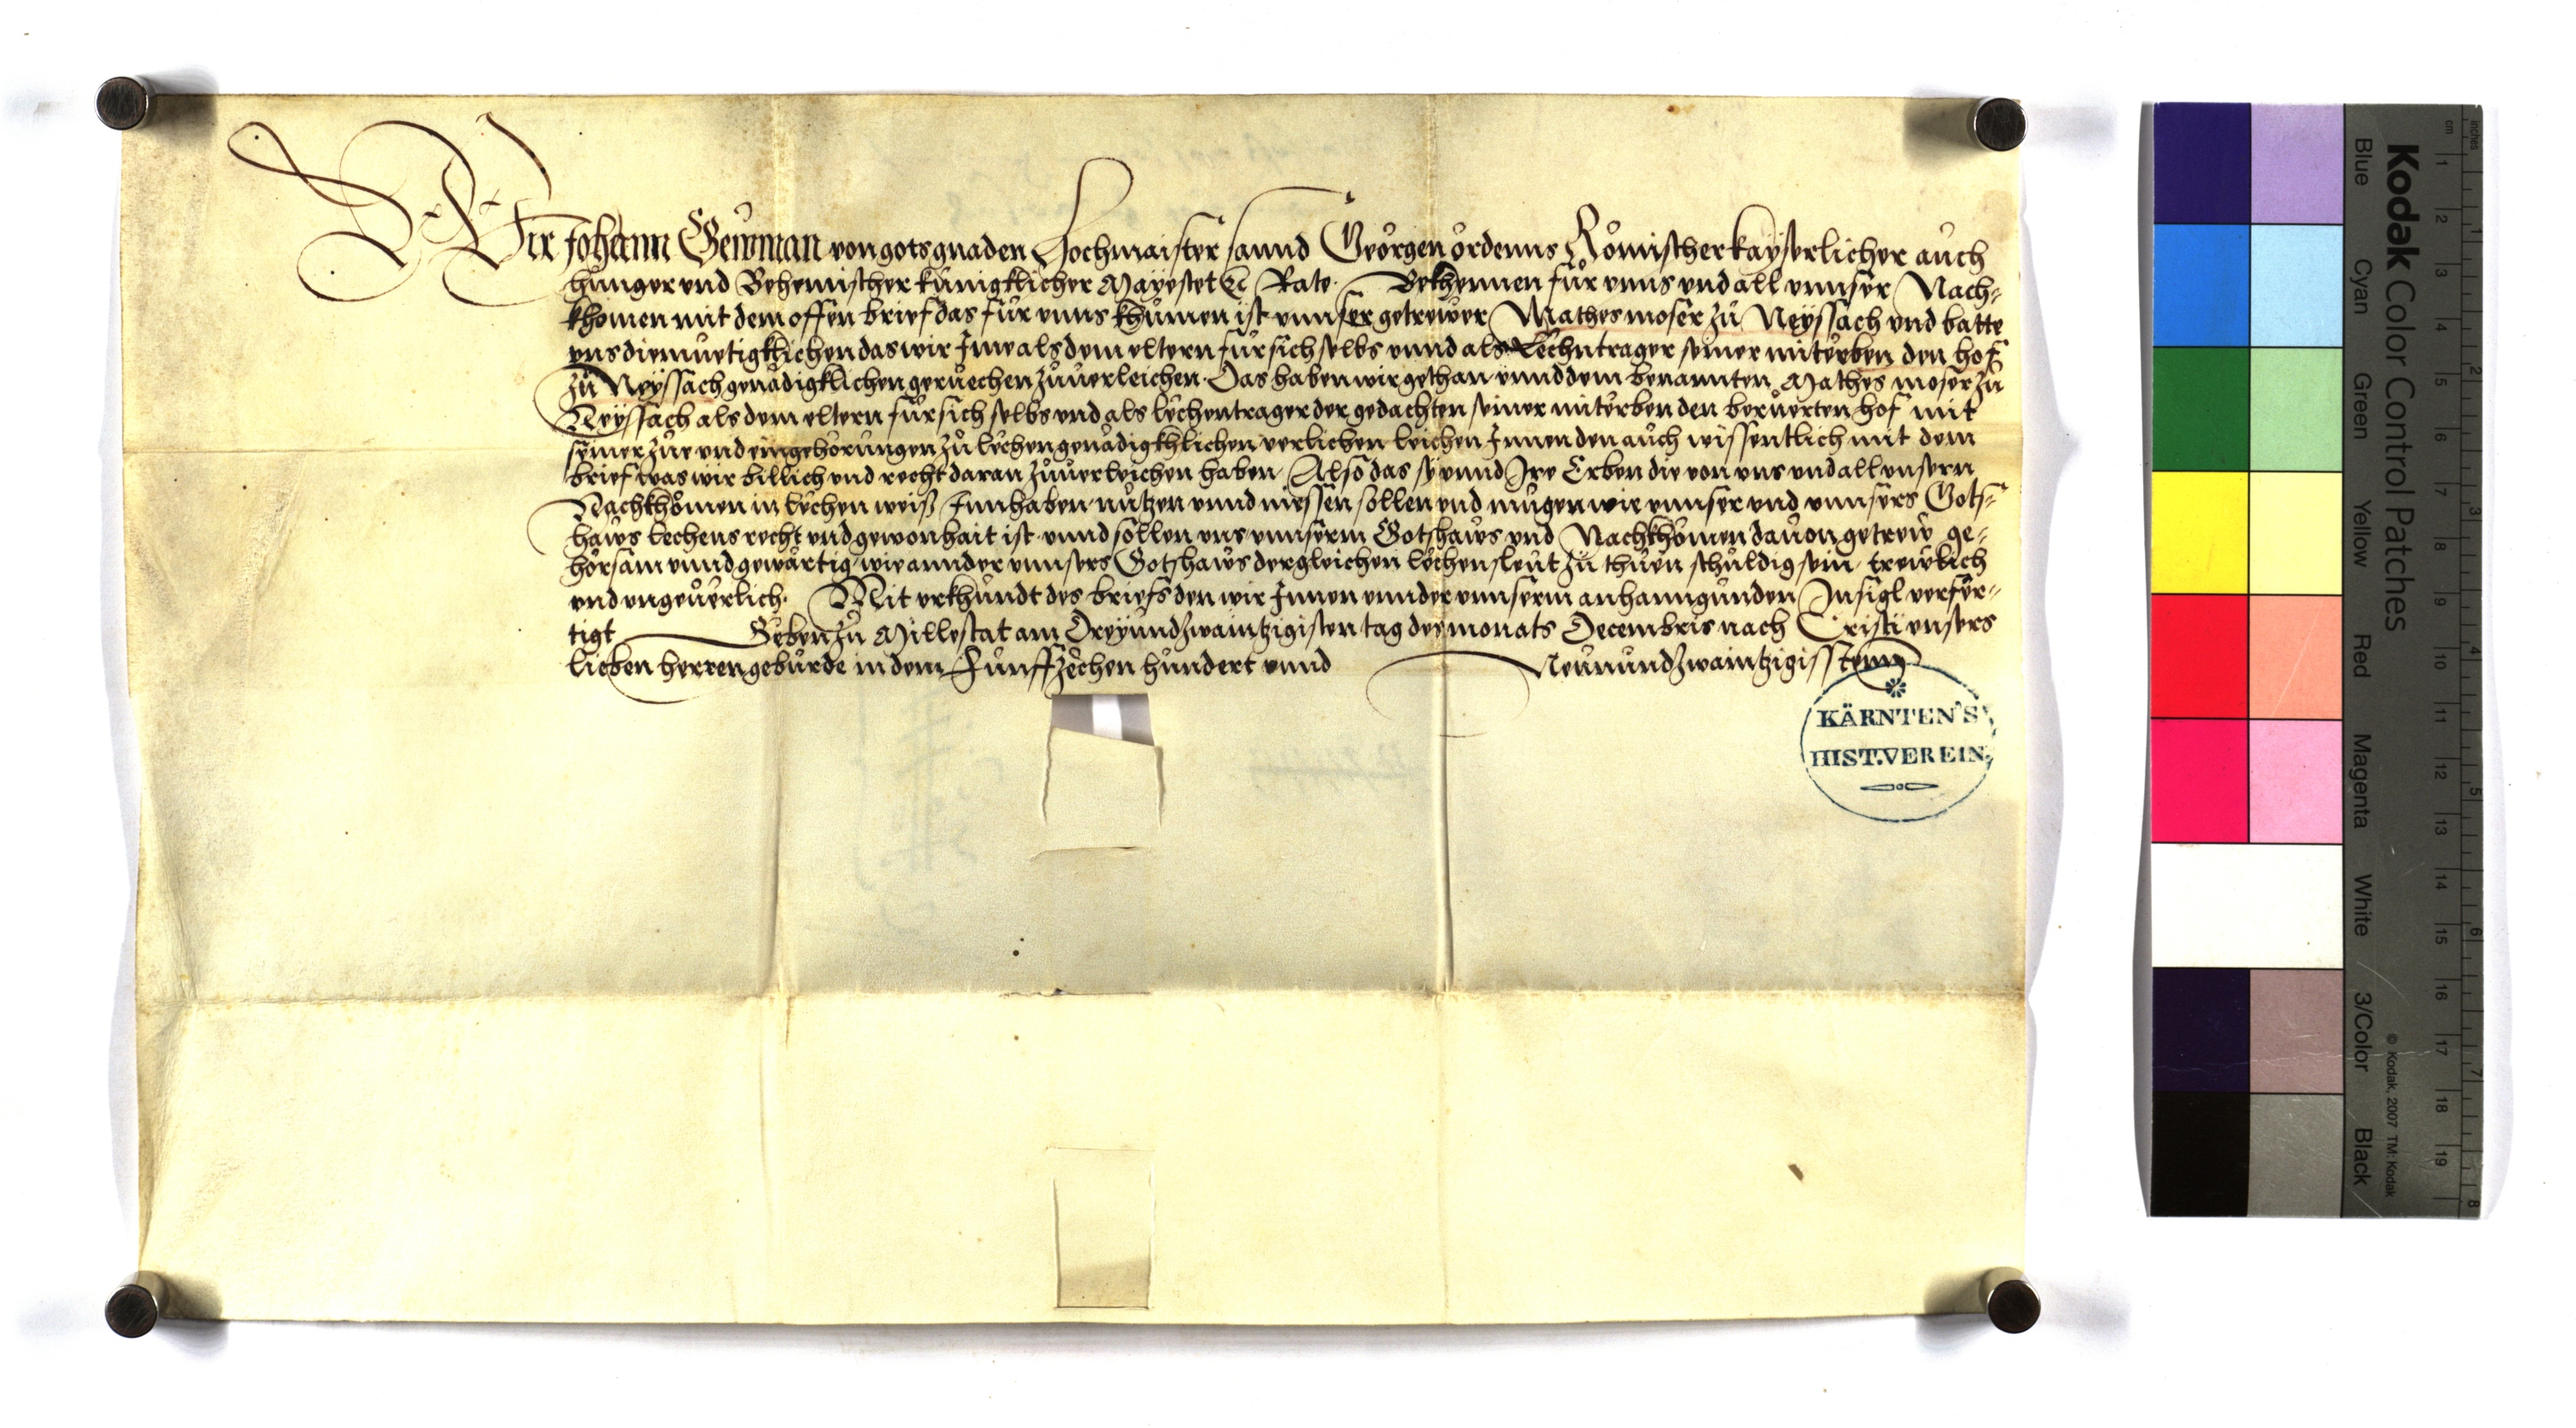 Wir Johann Gewman von gots gnaden Hochmaister sannd Georgen ordenns Römischer kayserlicher auch
hunger vnd Behemischer künigklicher Mayestet ꝛc Rate. Bekhennen für vnns vnd all vnnser Nach-
khomen mit dem offen brief das für vnns khumen ist vnnser getrewer Mathes moser zů Neyssach vnd batte
vns diemuetigklichen das wir Ime als dem eltern für sich selbs vnnd als Lechntrager seiner miterben den hof
zů Neyssach genädigklichen geruechen zůuerleichen. Das haben wir gethan vnnd dem benannten Mathes moser zů
Neyssach als dem eltern für sich selbs vnd als lechentrager der gedachten seiner miterben den berůerten hof mit
seiner zůe vnd eingehorungen zů lechen genädigkhlichen verlichen leichen Innen den auch wissentlich mit dem
brief was wir billich vnd recht daran zůuerleichen haben. Also das sy vnnd Ire Erben die von vns vnd all vnsern
Nachkhomen in lechen weiß Innhaben nutzen vnnd niessen sollen vnd mugen wie vnnser vnd vnnsers Gots-
haws lechens recht vnd gewonhait ist. vnnd sollen vns vnnserm Gotshaws vnd Nachkhomen dauon getrew ge-
horsam vnnd gewärtig wie annder vnnsers Gotshaws dergleichen lechensleut zů thuen schuldig sein. trewlich
vnd vngeuerlich. Mit vrkhundt des briefs den wir Innen vnnder vnnserm anhanngunden Insigl verfer-
tigt Geben zů Millestat am Dreyundzwaintzigisten tag des monats Decembris nach Cristi vnsers
lieben herren geburde in dem Funffzechen hundert vnnd Neunundzwaintzigissten
KÄRNTEN'S
HIST.VEREIN.
Kodak Color Control Patches
Blue Cyan Green Yellow Red Magenta White 3/Color Black
© Kodak, 2007 TM: Kodak
inches 1 2 3 4 5 6 7 8
cm 1 2 3 4 5 6 7 8 9 10 11 12 13 14 15 16 17 18 19